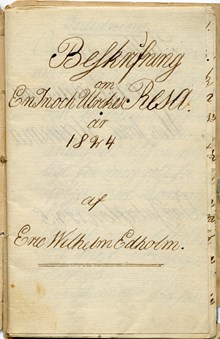 Beskrifning
om
En In och Utrikes Resa.
år
1844
af
Eric Wilhelm Edholm.